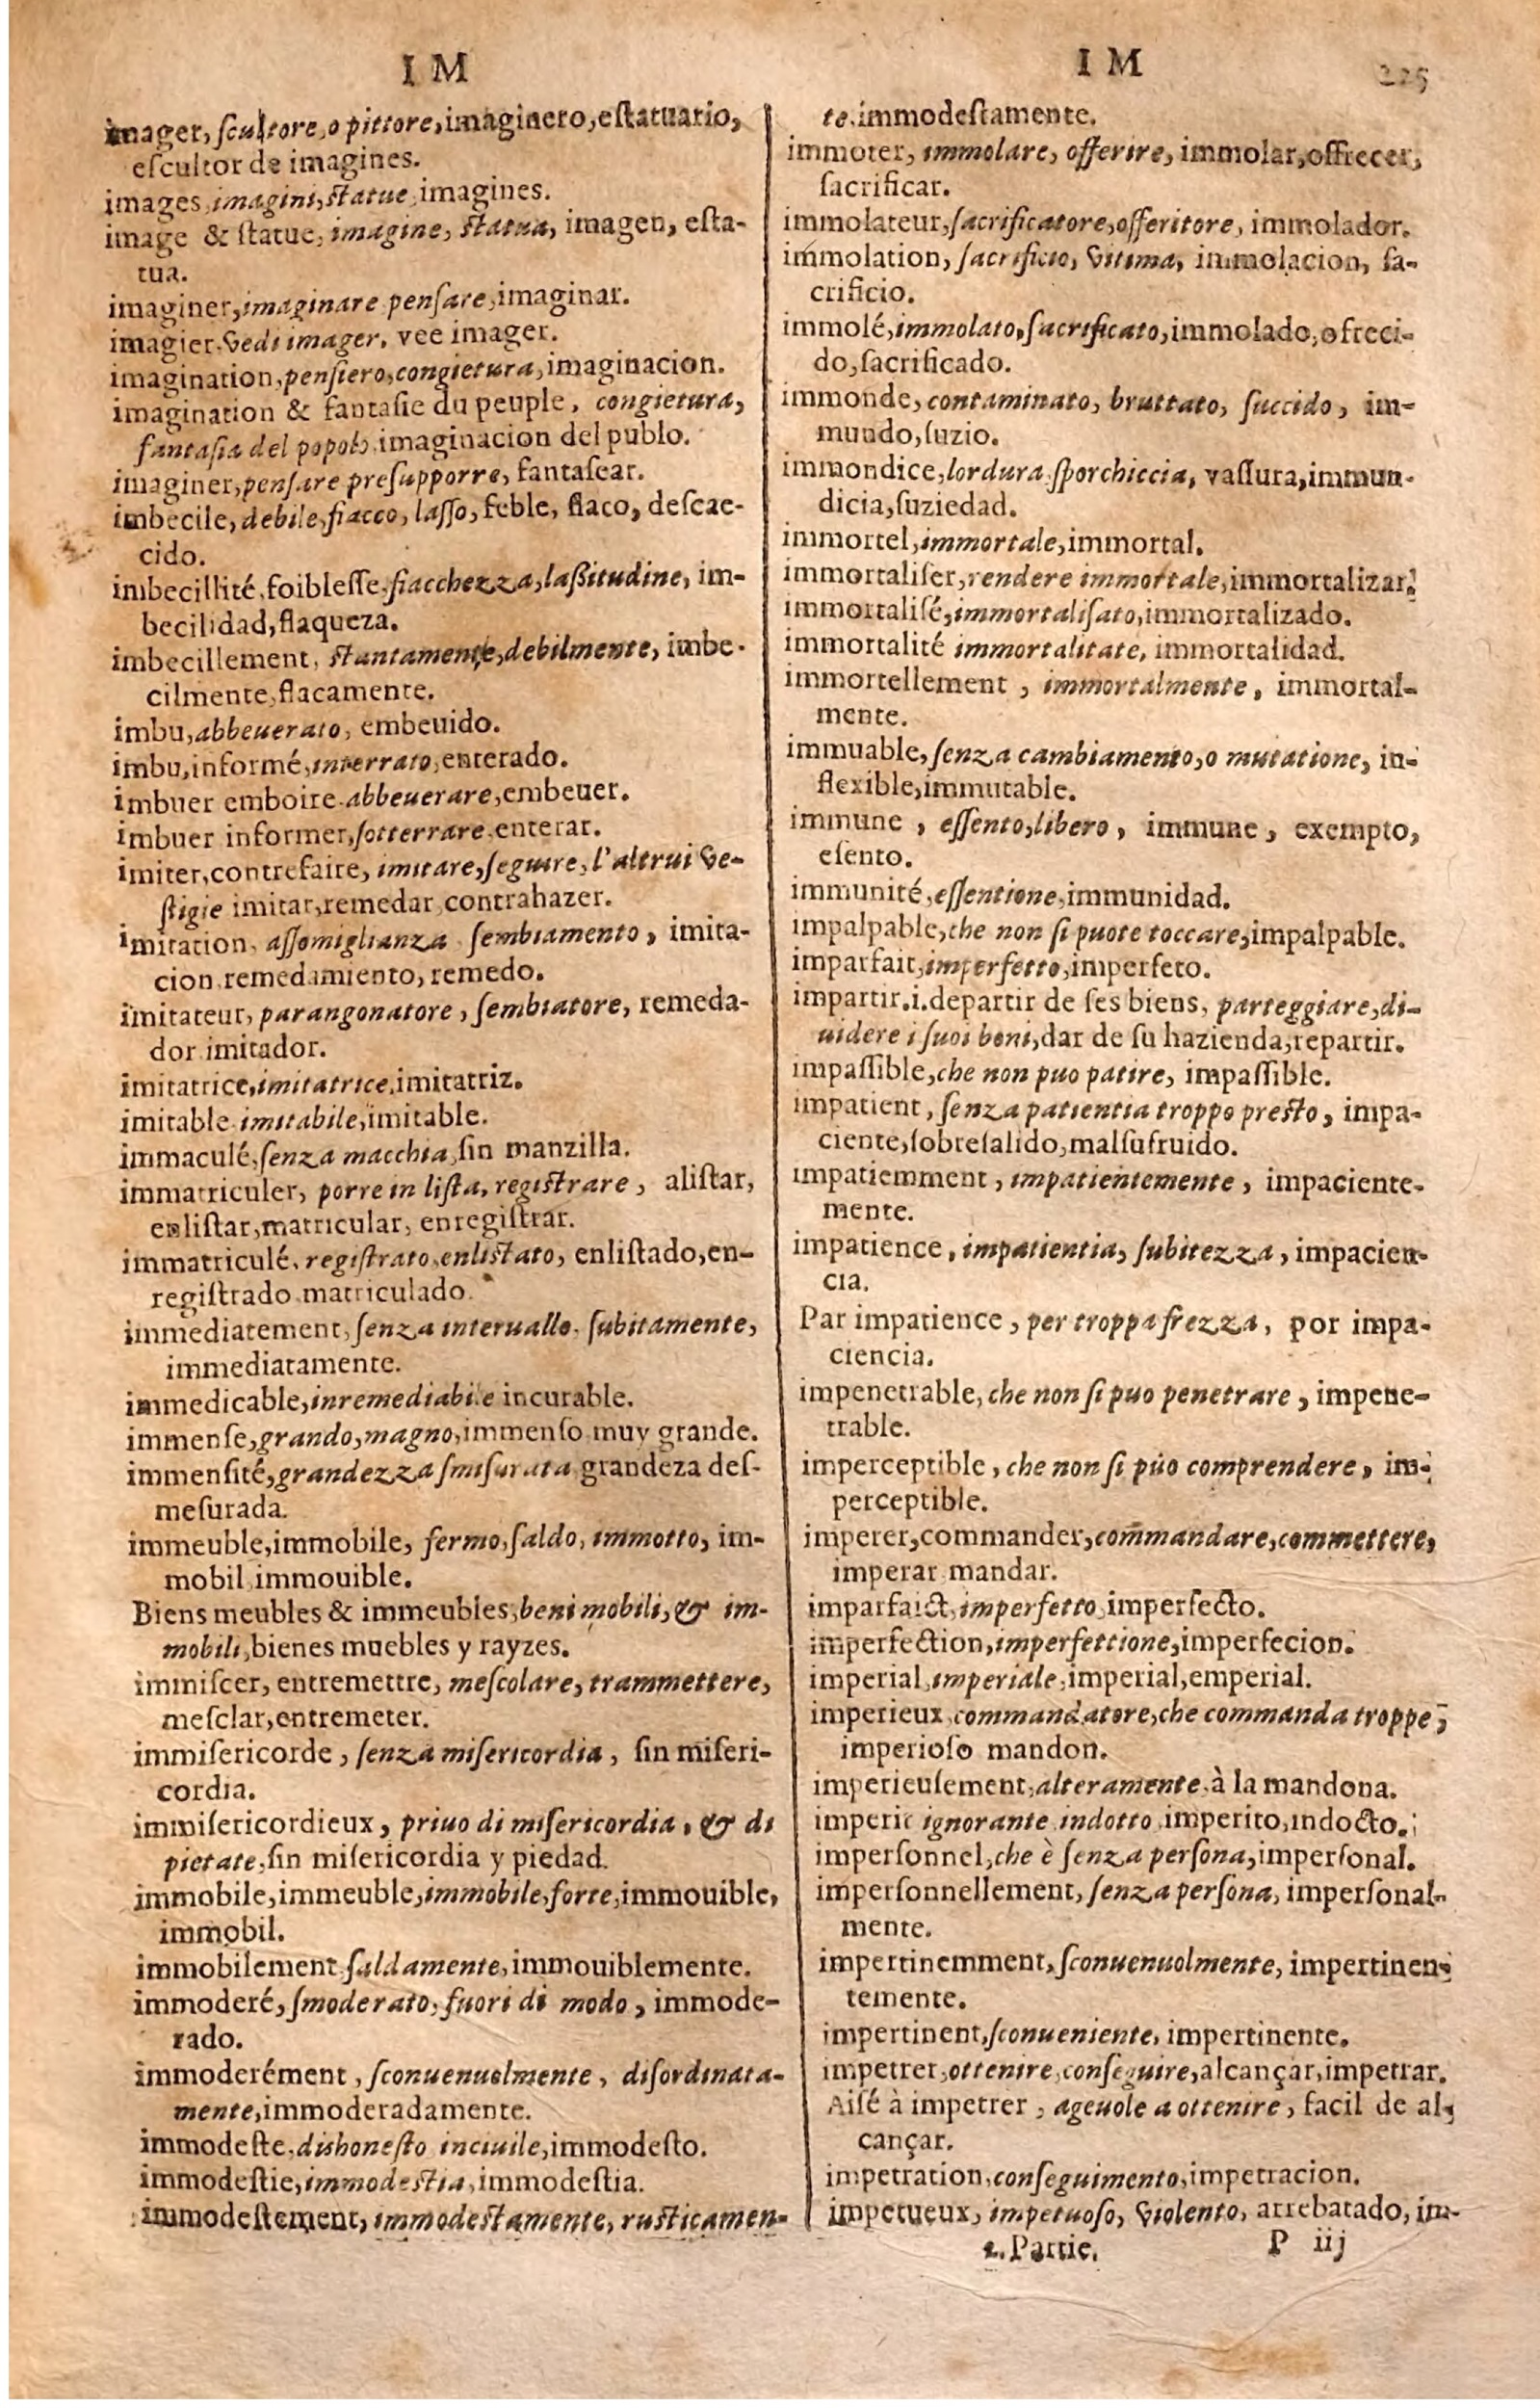 I M
imager, ſcultore, o pittore, imaginero, eſtatuario,
eſcultor de imagines.
images, imagini, ſtatue, imagines.
image & ſtatue, imagine, ſtatua, imagen, eſta-
tua.
imaginer, imaginare penſare, imaginar.
imagier. vedi imager. vee imager.
imagination, penſiero, congietura, imaginacion.
imagination & fantaſie du peuple, congietura,
fantaſia del popolo, imaginacion del publo.
imaginer, penſare preſupporre, fantaſear.
imbecile, debile, fiacco, laſſo, feble, flaco, deſcae-
cido.
imbecillité, foibleſſe, fiacchezza, laßitudine, im-
becilidad, flaqueza.
imbecillement, ſtantamente, debilmente, imbe-
cilmente, flacamente.
imbu, abbeuerato, embeuido.
imbu, informé, interrato, enterado.
imbuer emboire. abbeuerare, embeuer.
imbuer informer, ſotterrare, enterar.
imiter, contrefaire, imitare, ſeguire, l'altrui ve-
ſtigie imitar, remedar, contrahazer.
imitation, aſſomiglianza ſembiamento, imita-
cion, remedamiento, remedo.
imitateur, parangonatore, ſembiatore, remeda-
dor imitador.
imitatrice, imitatrice, imitatriz.
imitable imitabile, imitable.
immaculé, ſenza macchia, ſin manzilla.
immatriculer, porre in liſta, regiſtrare, aliſtar,
enliſtar, matricular, enregiſtrar.
immatriculé, regiſtrato, enliſtato, enliſtado, en-
regiſtrado matriculado.
immediatement, ſenza interuallo, ſubitamente,
immediatamente.
immedicable, inremediabile incurable.
immenſe, grando, magno, immenſo muy grande.
immenſité, grandezza ſmiſurata grandeza deſ-
meſurada.
immeuble, immobile, fermo, ſaldo, immotto, im-
mobil, immouible.
Biens meubles & immeubles, beni mobili, & im-
mobili, bienes muebles y rayzes.
immiſcer, entremettre, meſcolare, trammettere,
meſclar, entremeter.
immiſericorde, ſenza miſericordia, ſin miſeri-
cordia.
immiſericordieux, priuo di miſericordia, & di
pietate, ſin miſericordia y piedad.
immobile, immeuble, immobile, forte, immouible,
immobil.
immobilement ſaldamente, immouiblemente.
immoderé, ſmoderato, fuori di modo, immode-
rado.
immoderément, ſconuenuolmente, diſordinata-
mente, immoderadamente.
immodeſte, dishoneſto inciuile, immodeſto.
immodeſtie, immodeſtia, immodeſtia.
immodeſtement, immodeſtamente, ruſticamen-
I M 225
te, immodeſtamente.
immoter, immolare, offerire, immolar, offrecer,
ſacrificar.
immolateur, ſacrificatore, offeritore, immolador.
immolation, ſacrificio, vitima, immolacion, ſa-
crificio.
immolé, immolato, ſacrificato, immolado, ofreci-
do, ſacrificado.
immonde, contaminato, bruttato, ſuccido, im-
mundo, ſuzio.
immondice, lordura ſporchiccia, vaſſura, immun-
dicia, ſuziedad.
immortel, immortale, immortal.
immortaliſer, rendere immortale, immortalizar.
immortaliſé, immortaliſato, immortalizado.
immortalité immortalitate, immortalidad.
immortellement, immortalmente, immortal-
mente.
immuable, ſenza cambiamento, o mutatione, in-
flexible, immutable.
immune, eſſento, libero, immune, exempto,
eſento.
immunité, eſſentione, immunidad.
impalpable, che non ſi puote toccare, impalpable.
imparfait, imperfetto, imperfeto.
impartir. i. departir de ſes biens, parteggiare, di-
uidere i ſuoi beni, dar de ſu hazienda, repartir.
impaſſible, che non puo patire, impaſſible.
impatient, ſenza patientia troppo preſto, impa-
ciente, ſobreſalido, malſufruido.
impatiemment, impatientemente, impaciente-
mente.
impatience, impatientia, ſubitezza, impacien-
cia.
Par impatience, per troppa frezza, por impa-
ciencia.
impenetrable, che non ſi puo penetrare, impene-
trable.
imperceptible, che non ſi pùo comprendere, im-
perceptible.
imperer, commander, commandare, commettere,
imperar mandar.
imparfaict, imperfetto, imperfecto.
imperfection, imperfettione, imperfecion.
imperial, imperiale, imperial, emperial.
imperieux, commandatore, che commanda troppe,
imperioſo mandon.
imperieuſement, alteramente, à la mandona.
imperit ignorante indotto imperito, indocto.
imperſonnel, che è ſenza perſona, imperſonal.
imperſonnellement, ſenza perſona, imperſonal-
mente.
impertinemment, ſconuenuolmente, impertinen-
temente.
impertinent, ſconueniente, impertinente.
impetrer, ottenire, conſeguire, alcançar, impetrar.
Aiſé à impetrer, ageuole a ottenire, facil de al-
cançar.
impetration, conſeguimento, impetracion.
impetueux, impetuoſo, violento, arrebatado, im-
2. Partie. P iij